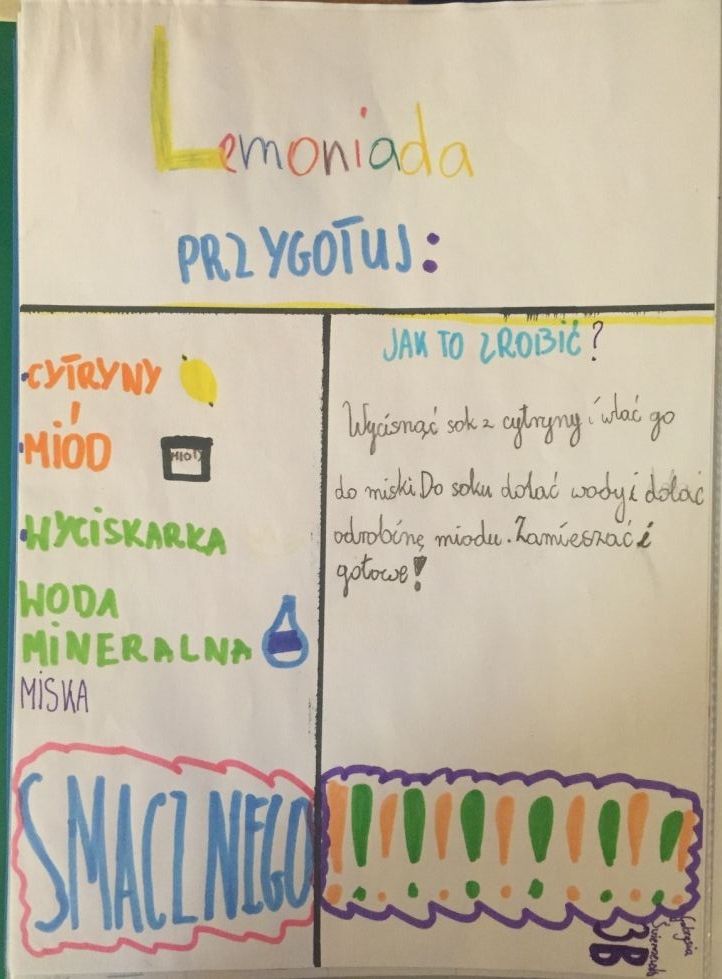 Lemoniada
PRZYGOTUJ:
• CYTRYNY
• MIÓD
MIÓD
• WYCISKARKA
WODA
MINERALNA
MISKA
SMACZNEGO
JAK TO ZROBIĆ?
Wycisnąć sok z cytryny i wlać go
do miski Do soku dolać wody i dolać
odrobinę miodu. Zamieszać i
gotowe!
!!!!!!!!!!!!
3B
Gabrysia